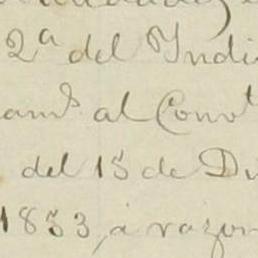 2ª del Indi
am.s al Conv.t
del 15 de Di
1853, á razon